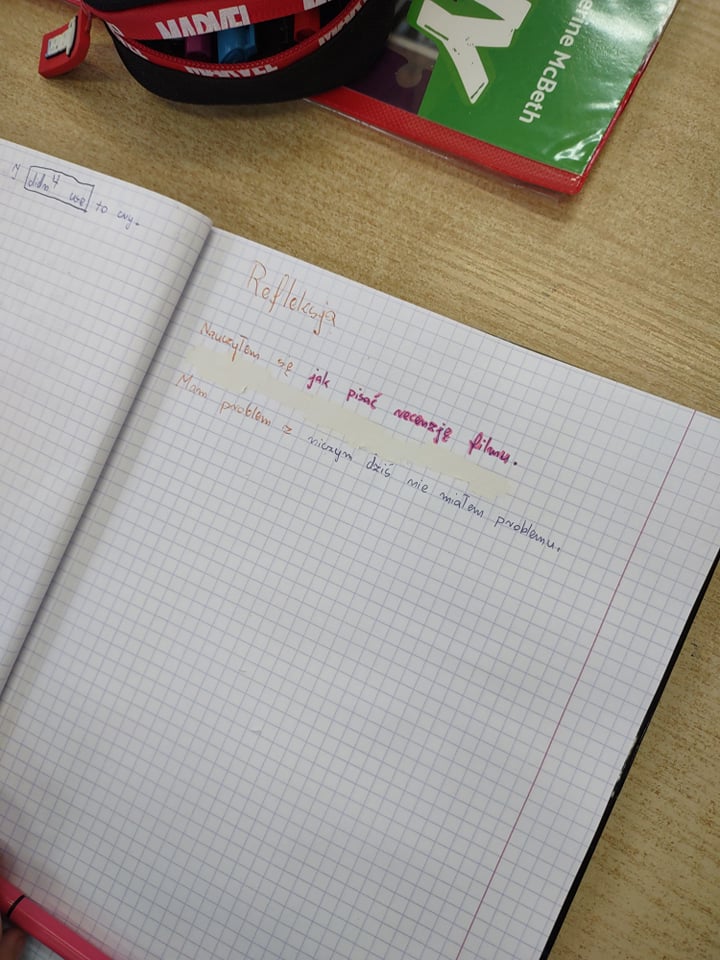 MARVEL
MARVEL
MARVEL
erine McBeth
I didn't use to cry.
Refleksja
Nauczyłem się jak pisać recenzję filmu.
Mam problem z niczym dziś nie miałem problemu.